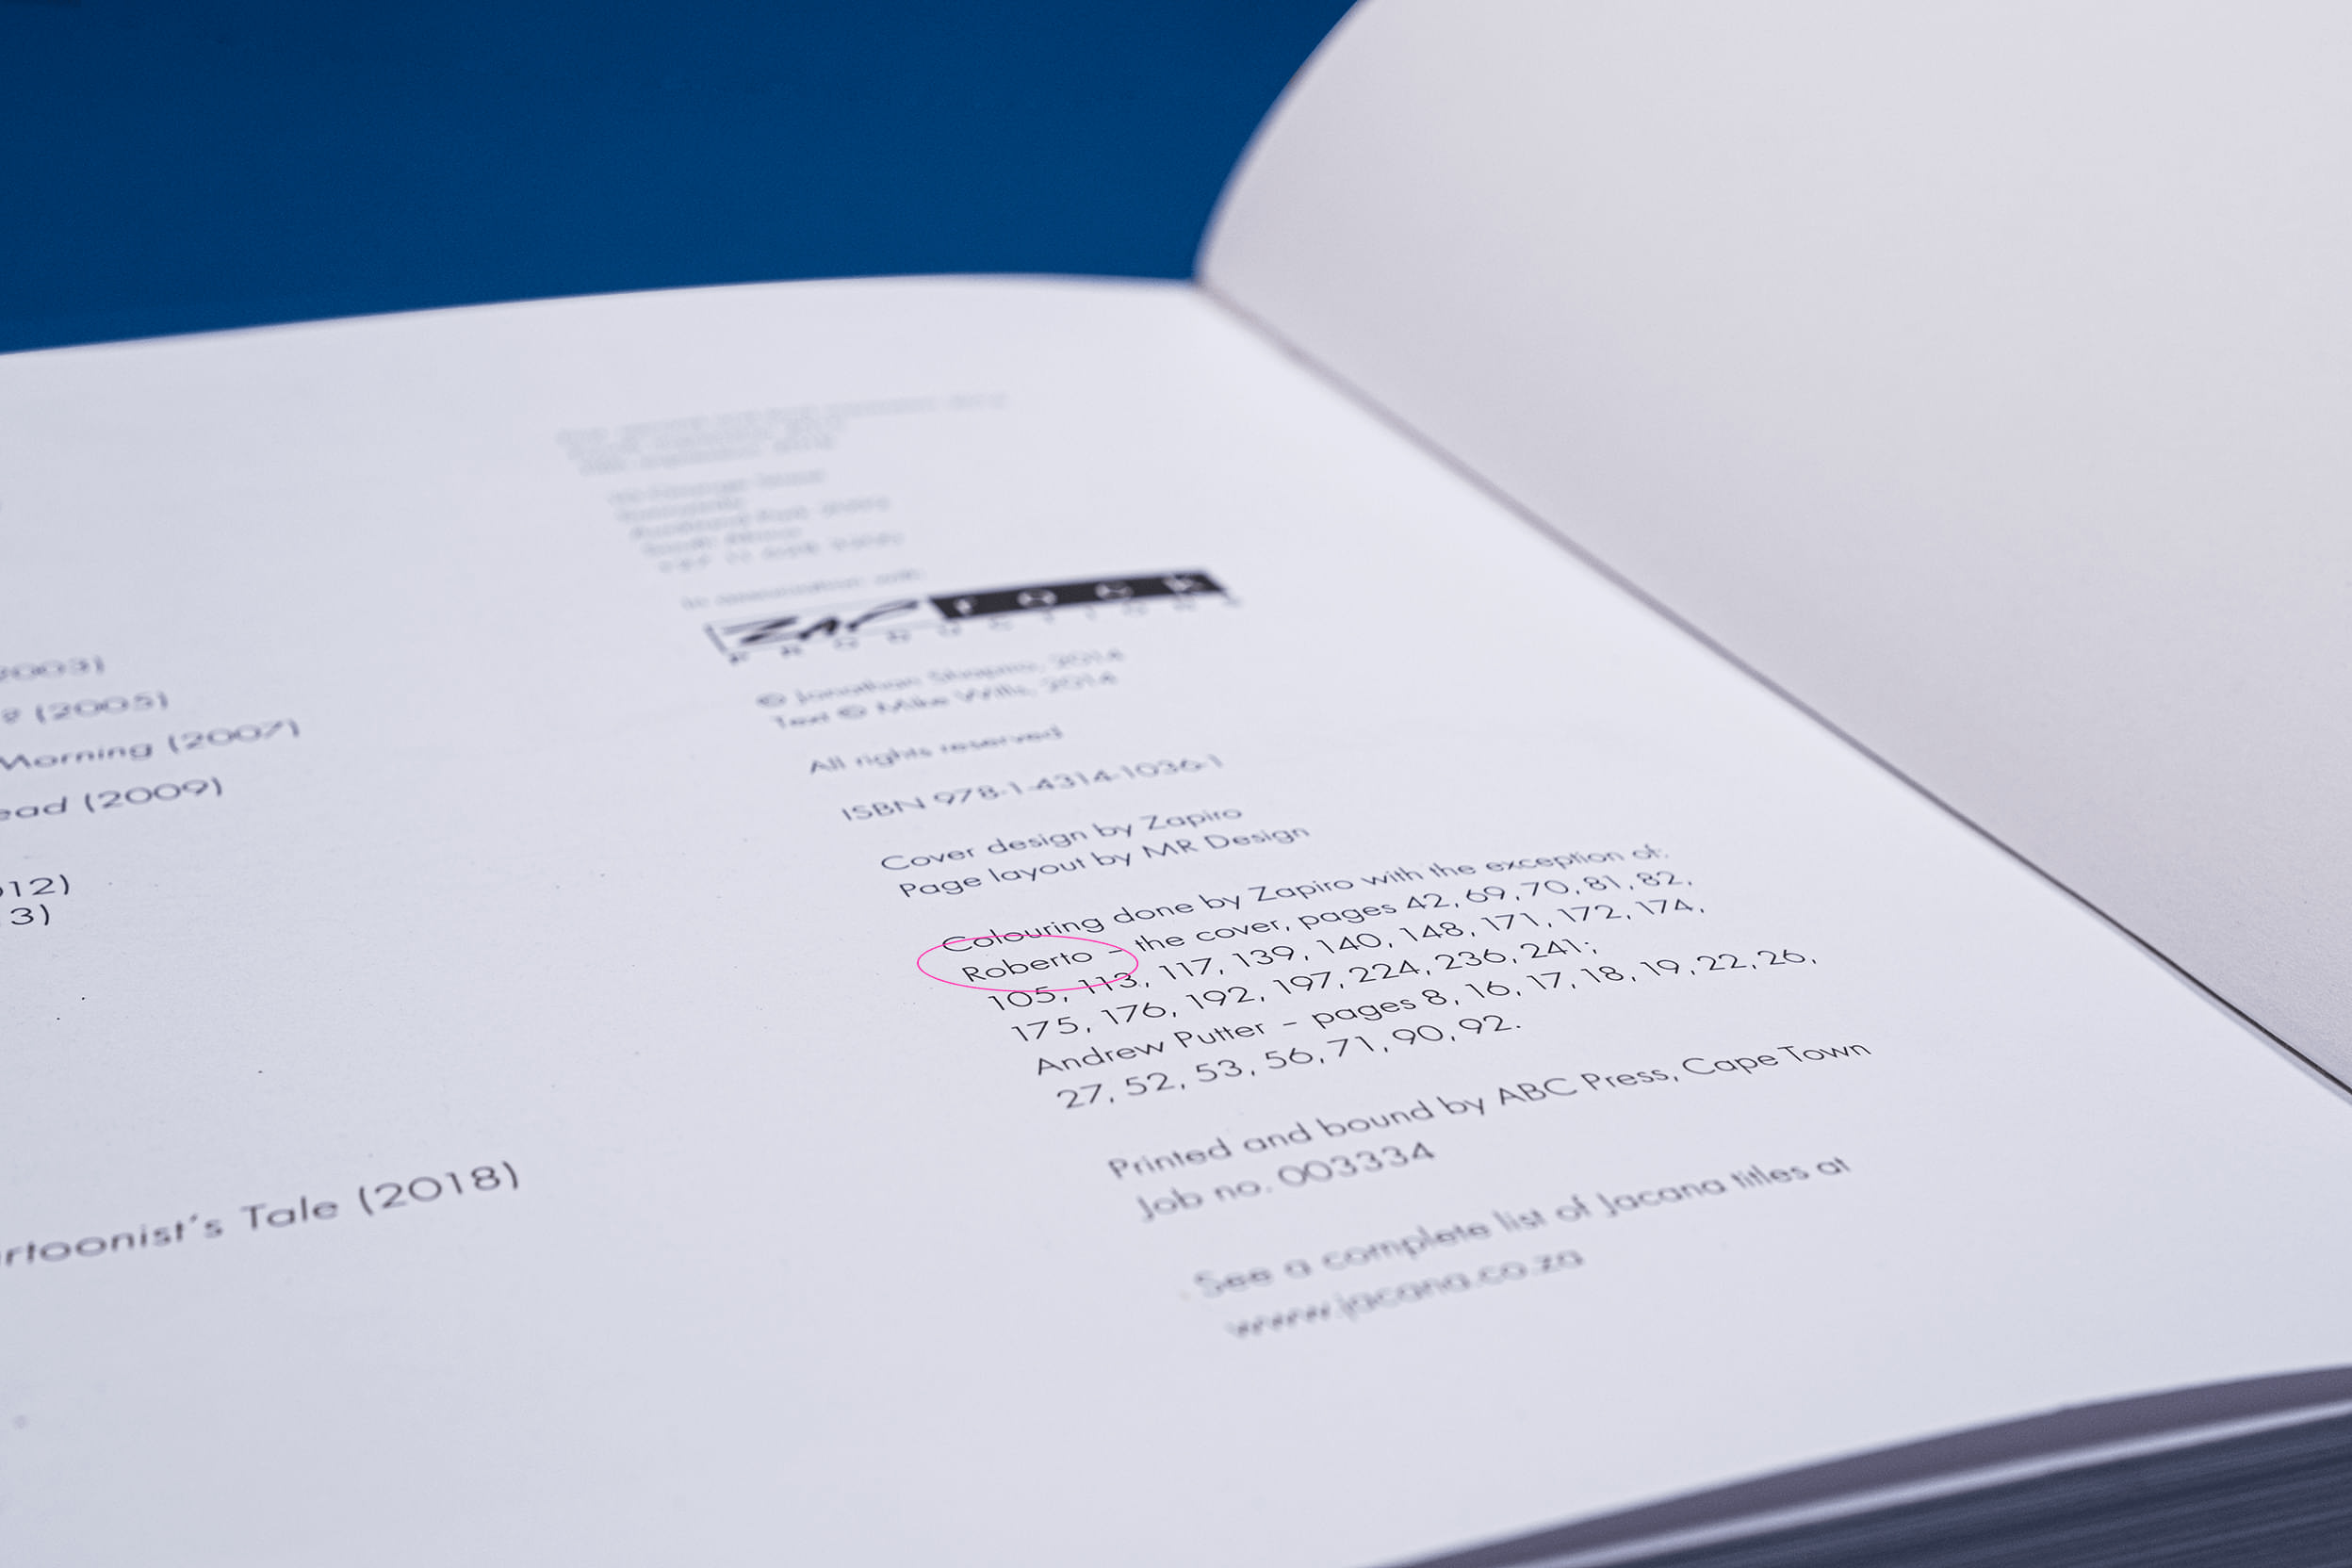 2003)
(2005)
Morning (2007)
ead (2009)
012)
13)
rtoonist's Tale (2018)
In association with
ZAP ROCK
PRODUCTIONS
© Jonathan Shapiro, 2014
Text © Mike Wills, 2014
All rights reserved
ISBN 978-1-4314-1036-1
Cover design by Zapiro
Page layout by MR Design
Colouring done by Zapiro with the exception of:
Roberto – the cover, pages 42, 69, 70, 81, 82,
105, 113, 117, 139, 140, 148, 171, 172, 174,
175, 176, 192, 197, 224, 236, 241;
Andrew Putter – pages 8, 16, 17, 18, 19, 22, 26,
27, 52, 53, 56, 71, 90, 92.
Printed and bound by ABC Press, Cape Town
Job no. 003334
See a complete list of Jacana titles at
www.jacana.co.za